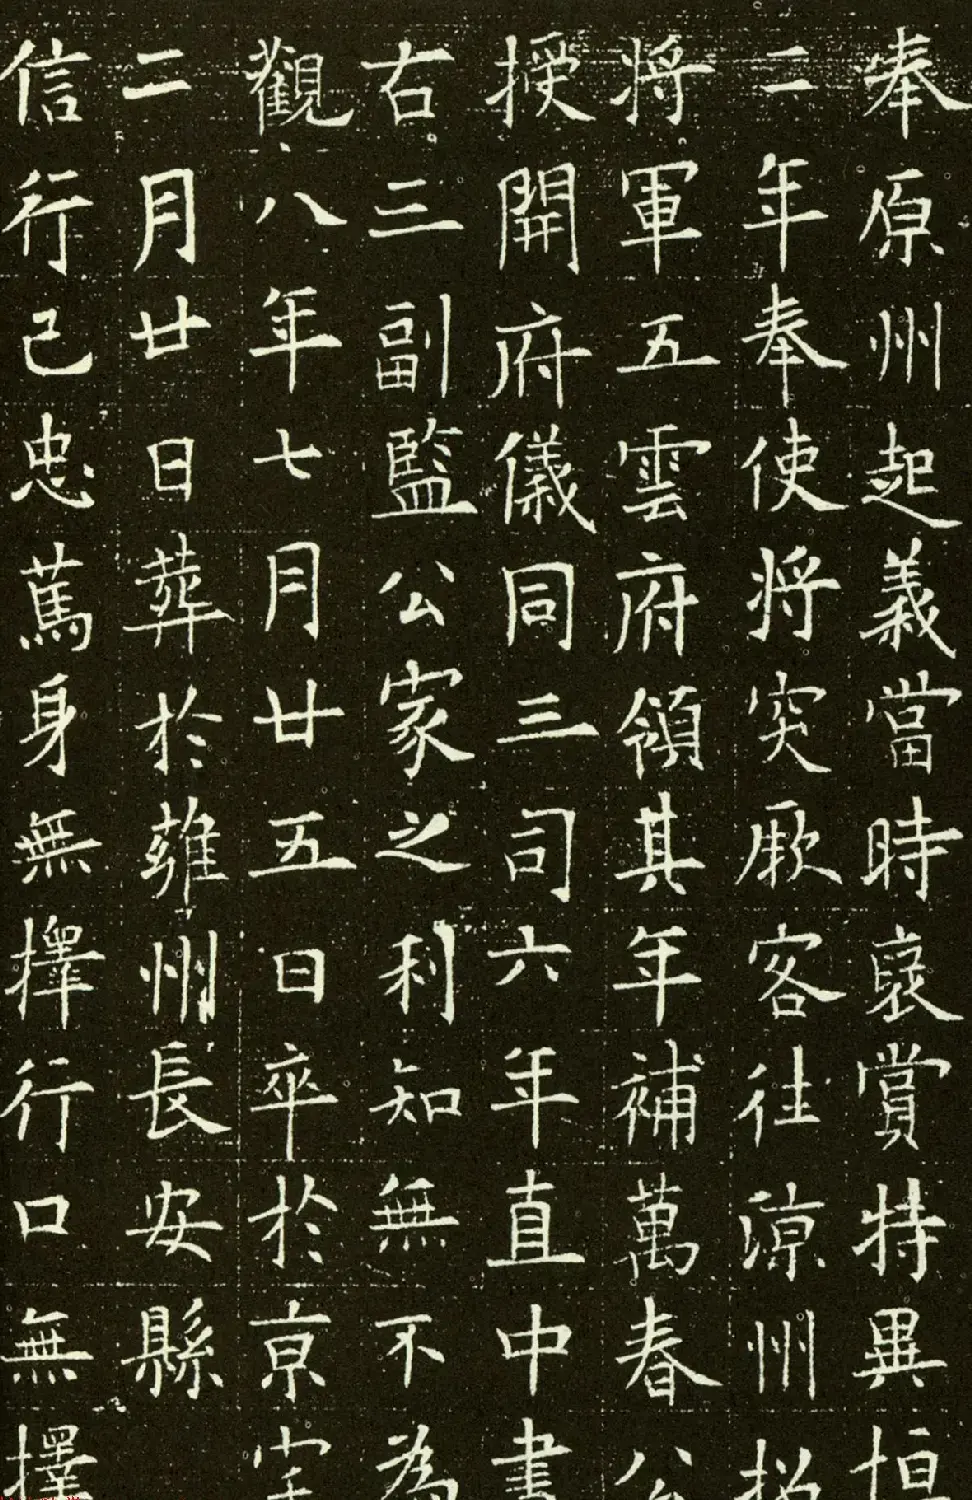 奉原州起義當時裒賞特異恒
二年奉使將突厥客往涼州招
將軍五雲府領其年補萬春公
授開府儀同三司六年直中書
右三副監公家之利知無不為
觀八年七月廿五日卒於京宅
二月廿日葬於雍州長安縣
信行己忠篤身無擇行口無擇